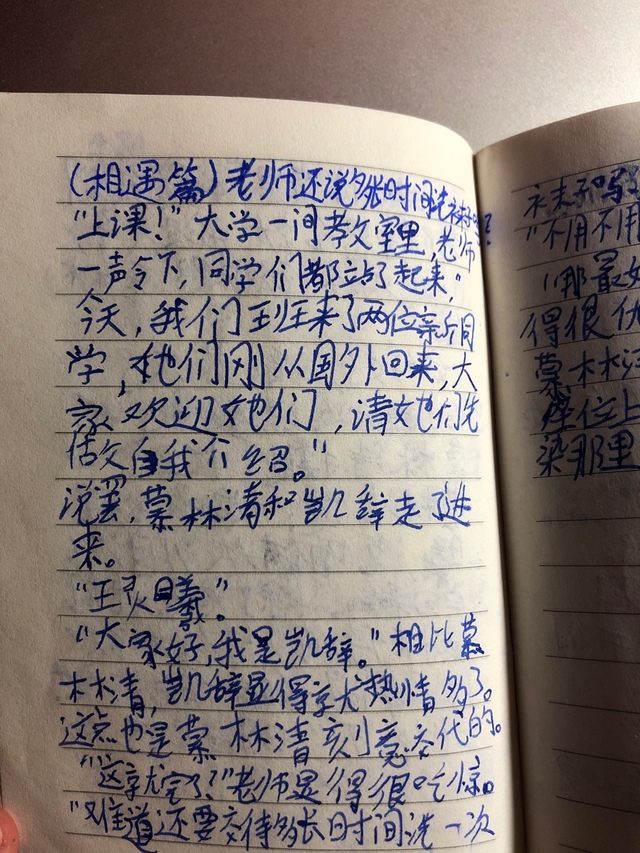 (相遇篇)老师还说多长时间洗衤末子吗?
"上课!"大学一间教室里,老师
一声令下,同学们都站了起来,"
今天,我们班来了两位新同
学,她们刚从国外回来,大
家欢迎她们,请她们先
做自我介绍。"
说罢,慕林清和凯辞走了进
来。
"王灵曦。"
"大家好,我是凯辞。"相比慕
林清,凯辞显得热情多了。
这点也是慕林清刻意交代的。
"这就完了?"老师显得很吃惊。
"难道还要交待多长时间洗一次
衤末子吗
"不用不用
"那最好
得很优
慕林清
座位上
染那里